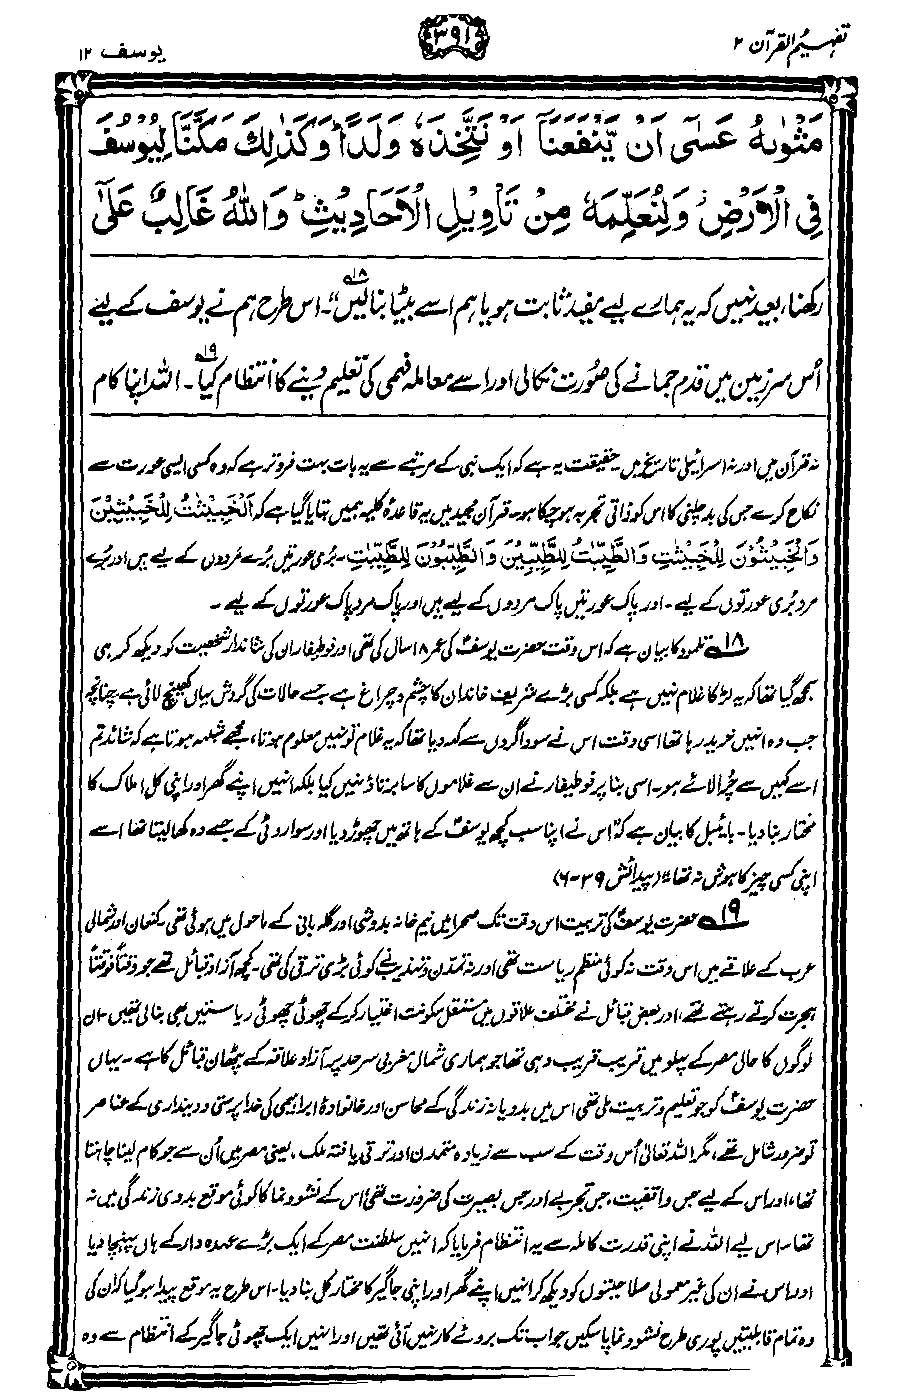 تفہیم القرآن ۲
۳۹۱
یوسف ۱۲
مَثْوٰىهُ عَسٰۤى اَنْ يَّنْفَعَنَاۤ اَوْ نَتَّخِذَهٗ وَلَدًا ؕ وَكَذٰلِكَ مَكَّنَّا لِيُوْسُفَ
فِى الْاَرْضِ ؗ وَلِنُعَلِّمَهٗ مِنْ تَاْوِيْلِ الْاَحَادِيْثِ ؕ وَاللّٰهُ غَالِبٌ عَلٰۤى
رکھنا، بعید نہیں کہ یہ ہمارے لیے مفید ثابت ہو یا ہم اسے بیٹا بنا لیں۱۸“۔ اس طرح ہم نے یوسف کے لیے
اُس سرزمین میں قدم جمانے کی صُورت نکالی اور اسے معاملہ فہمی کی تعلیم دینے کا انتظام کیا۱۹۔ اللہ اپنا کام
نہ قرآن میں اور نہ اسرائیلی تاریخ میں۔ حقیقت یہ ہے کہ ایک نبی کے مرتبے سے یہ بات بہت فروتر ہے کہ وہ کسی ایسی عورت سے
نکاح کرے جس کی بدچلنی کا اس کو ذاتی تجربہ ہو چکا ہو۔ قرآن مجید میں یہ قاعدۂ کلیہ ہمیں بتایا گیا ہے کہ اَلْخَبِيْثٰتُ لِلْخَبِيْثِيْنَ
وَالْخَبِيْثُوْنَ لِلْخَبِيْثٰتِ وَالطَّيِّبٰتُ لِلطَّيِّبِيْنَ وَالطَّيِّبُوْنَ لِلطَّيِّبٰتِ۔ بُری عورتیں بُرے مَردوں کے لیے ہیں اور بُرے
مرد بُری عورتوں کے لیے۔ اور پاک عورتیں پاک مردوں کے لیے ہیں اور پاک مرد پاک عورتوں کے لیے۔
۱۸ تلمود کا بیان ہے کہ اس وقت حضرت یوسفؑ کی عمر ۱۸ سال کی تھی اور فوطیفار ان کی شاندار شخصیت کو دیکھ کر ہی
سمجھ گیا تھا کہ یہ لڑکا غلام نہیں ہے بلکہ کسی بڑے شریف خاندان کا چشم و چراغ ہے جسے حالات کی گردش یہاں کھینچ لائی ہے چنانچہ
جب وہ انہیں خرید رہا تھا اسی وقت اس نے سوداگروں سے کہہ دیا تھا کہ یہ غلام تو نہیں معلوم ہوتا، مجھے شبہ ہوتا ہے کہ شائد تم
اسے کہیں سے چُرا لائے ہو۔ اسی بنا پر فوطیفار نے ان سے غلاموں کا سا برتاؤ نہیں کیا بلکہ انہیں اپنے گھر اور اپنی کل املاک کا
مختار بنا دیا۔ بائیبل کا بیان ہے کہ ”اس نے اپنا سب کچھ یوسفؑ کے ہاتھ میں چھوڑ دیا اور سوا روٹی کے جسے وہ کھا لیتا تھا اسے
اپنی کسی چیز کا ہوش نہ تھا“ (پیدائش ۳۹-۶)
۱۹ حضرت یوسفؑ کی تربیت اس وقت تک صحرا میں نیم خانہ بدوشی اور گلہ بانی کے ماحول میں ہوئی تھی۔ کنعان اور شمالی
عرب کے علاقے میں اس وقت نہ کوئی منظم ریاست تھی اور نہ تمدن و تہذیب نے کوئی بڑی ترقی کی تھی۔ کچھ آزاد قبائل تھے جو وقتاً فوقتاً
ہجرت کرتے رہتے تھے، اور بعض قبائل نے مختلف علاقوں میں مستقل سکونت اختیار کر کے چھوٹی چھوٹی ریاستیں بھی بنا لی تھیں۔ ان
لوگوں کا حال مصر کے پہلو میں قریب قریب وہی تھا جو ہماری شمال مغربی سرحد پر آزاد علاقہ کے پٹھان قبائل کا ہے۔ یہاں
حضرت یوسفؑ کو جو تعلیم و تربیت ملی تھی اس میں بدویانہ زندگی کے محاسن اور خانوادۂ ابراہیمی کی خدا پرستی و دینداری کے عناصر
تو ضرور شامل تھے، مگر اللہ تعالیٰ اُس وقت کے سب سے زیادہ متمدن اور ترقی یافتہ ملک، یعنی مصر میں اُن سے جو کام لینا چاہتا
تھا، اور اس کے لیے جس واقفیت، جس تجربے اور جس بصیرت کی ضرورت تھی اُس کے نشوونما کا کوئی موقع بدوی زندگی میں نہ
تھا۔ اس لیے اللہ نے اپنی قدرت کاملہ سے یہ انتظام فرمایا کہ انہیں سلطنت مصر کے ایک بڑے عہدہ دار کے ہاں پہنچا دیا
اور اس نے ان کی غیر معمولی صلاحیتوں کو دیکھ کر انہیں اپنے گھر اور اپنی جاگیر کا مختار کُل بنا دیا۔ اس طرح یہ موقع پیدا ہو گیا کہ ان کی
وہ تمام قابلیتیں پوری طرح نشوونما پا سکیں جو اب تک بروئے کار نہیں آئی تھیں اور انہیں ایک چھوٹی جاگیر کے انتظام سے وہ